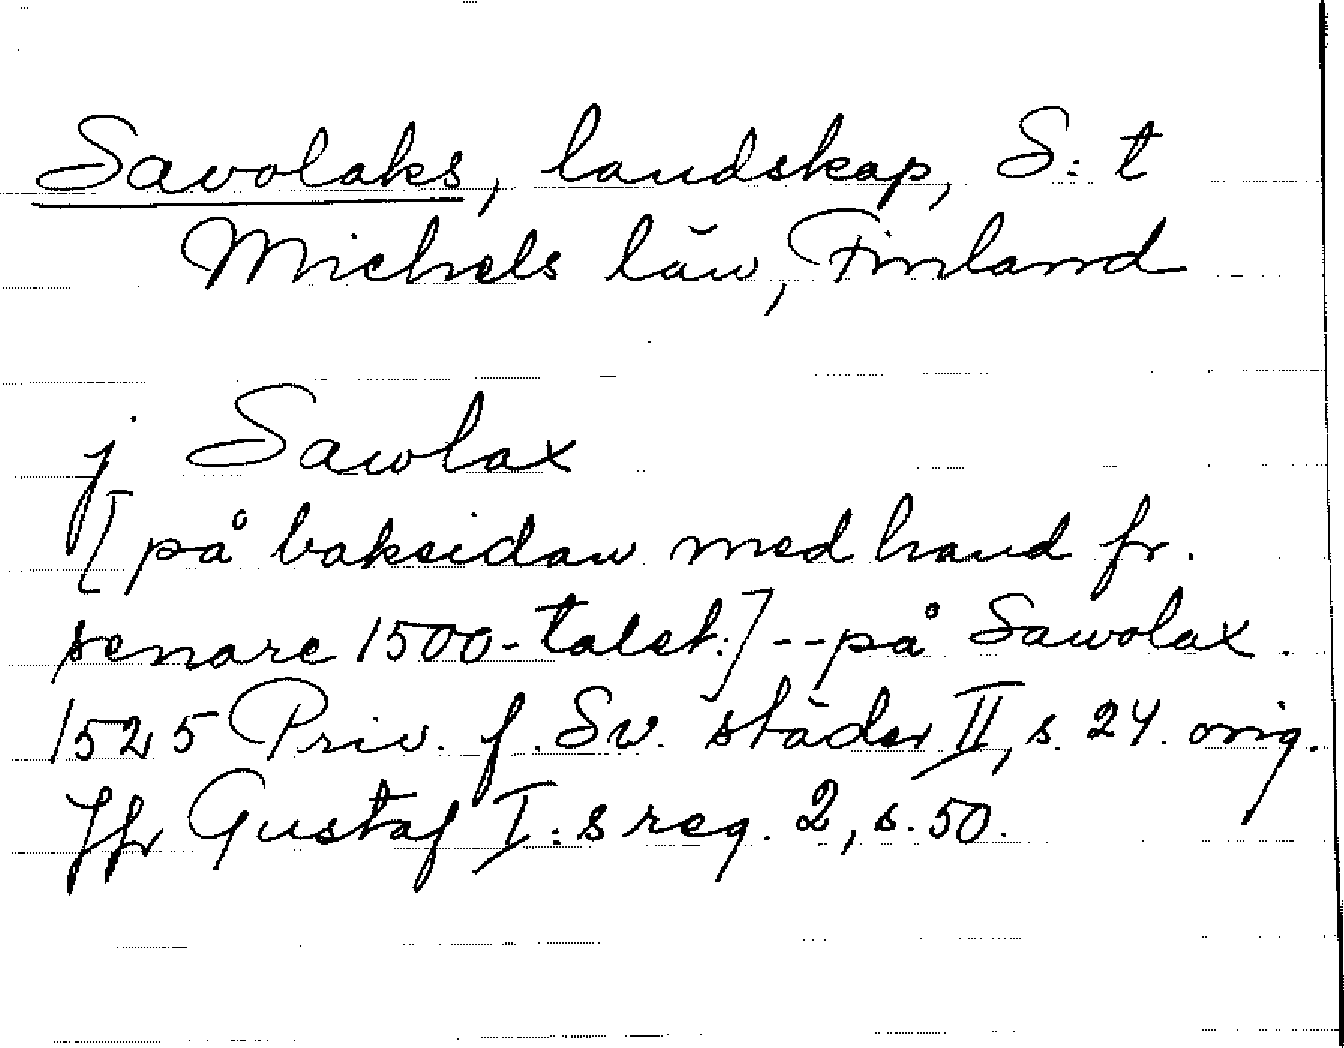 Savolaks, landskap, S:t
Michels län, Finland
j Sawlax
[på baksidan med hand fr.
senare 1500-talet:] -- på Sawolax.
1525 Priv. f. Sv. städer II, s. 24. orig.
Jfr Gustaf I:s reg. 2, s. 50.